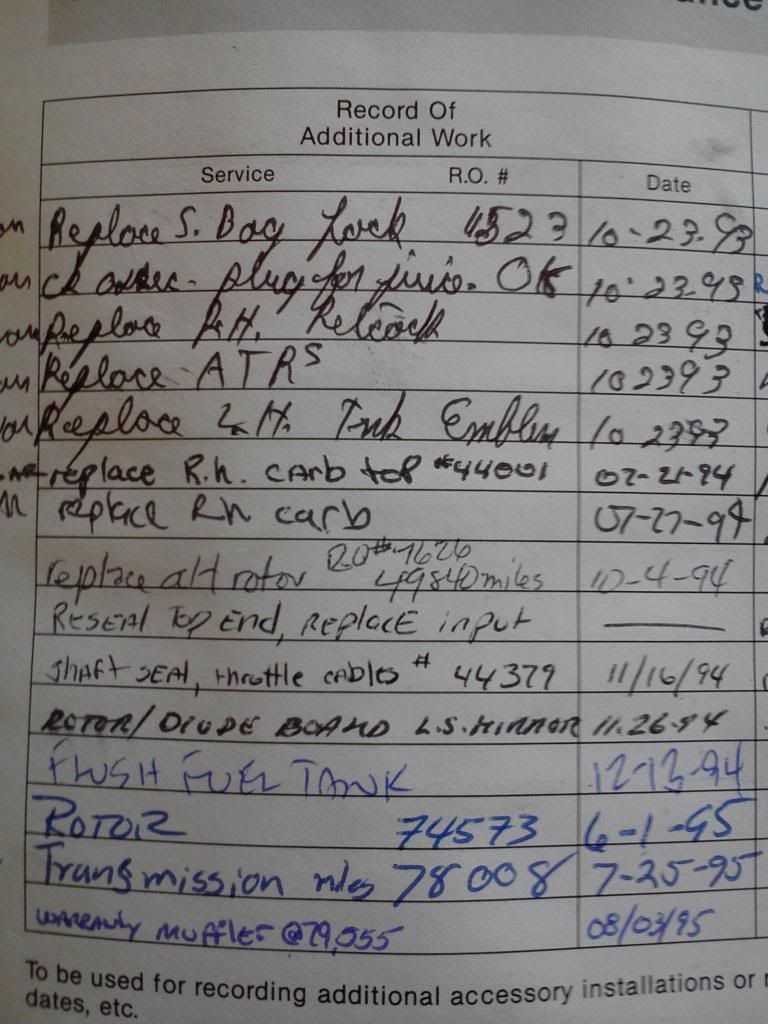 Record Of
Additional Work
Service R.O. # Date
Replace S. Bag Lock 4523 10-23-93
ck access. plug for juice. OK 10-23-93
Replace R.H. 10 23 93
Replace ATRS 10 23 93
Replace L.H. Tnk Emblem 10 23 93
replace R.h. carb top #44001 07-21-94
replace Rh carb 07-27-94
replace alt rotor RO# 1626
49840 miles 10-4-94
RESEAL Top End, REPLACE input
SHAFT SEAL, throttle cables # 44379 11/16/94
ROTOR/ DIODE BOARD L.S. MIRROR 11.26.94
FLUSH FUEL TANK 12-13-94
ROTOR 74573 6-1-95
Transmission miles 78008 7-25-95
WARRANTY MUFFLER @79,055 08/03/95
To be used for recording additional accessory installations or
dates, etc.